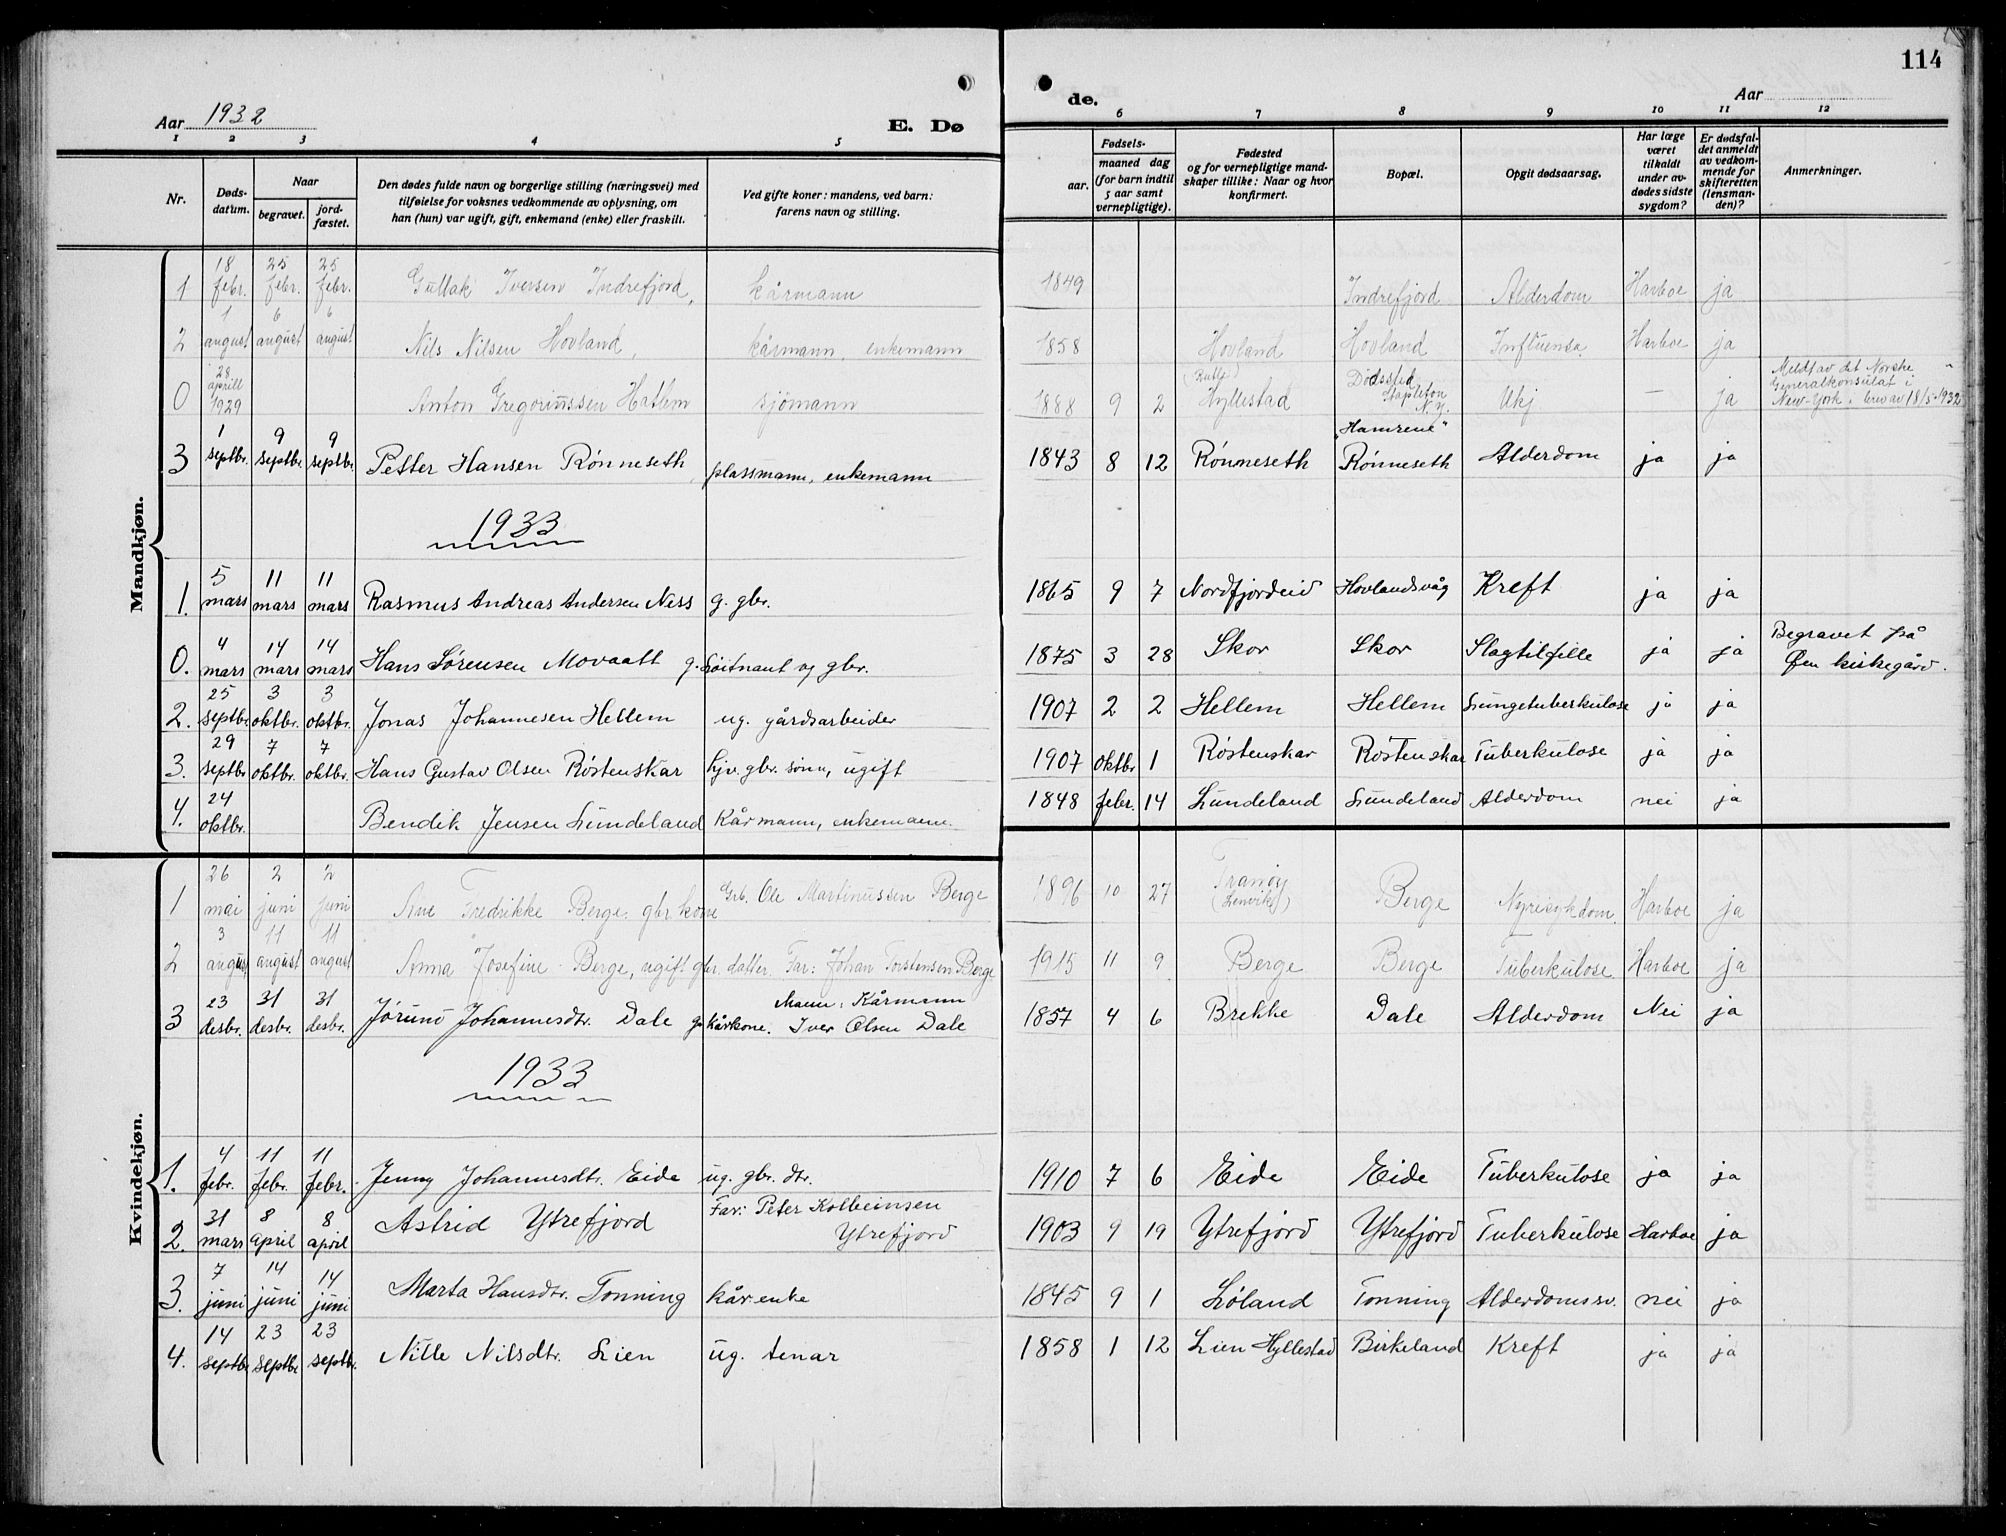 114
Aar 1932
E. Dø
de.
Aar
1 2 3 4 5 6 7 8 9 10 11 12
Nr.
Døds-
datum.
Naar
begravet.
jord-
fæstet.
Den dødes fulde navn og borgerlige stilling (næringsvei) med
tilføielse for voksnes vedkommende av oplysning, om
han (hun) var ugift, gift, enkemand (enke) eller fraskilt.
Ved gifte koner: mandens, ved barn:
farens navn og stilling.
Fødsels-
aar.
maaned dag
(for barn indtil
5 aar samt
vernepligtige).
Fødested
og for vernepligtige mand-
skaper tillike: Naar og hvor
konfirmert.
Bopæl.
Opgit dødsaarsag.
Har læge
været
tilkaldt
under av-
dødes sidste
sygdom?
Er dødsfal-
det anmeldt
av vedkom-
mende for
skifteretten
(lensman-
den)?
Anmerkninger.
Mandkjøn.
1 18 febr. 25 febr. 25 febr. Gullak Iversen Indrefjord, kårmann 1849 Indrefjord Alderdom Harboe ja
2 1 august 6 august 6 august Nils Nilsen Hovland, kårmann, enkemann 1858 Hovland Hovland Influensa Harboe ja
0 28 aprill 1929 Anton Gregoriussen Hatlem sjömann 1888 9 2 Hyllestad Dødssted Stapleton N.Y. Ukj — ja Meldt av det Norske
Generalkonsulat i
New-York, brev av 18/5-1932
3 1 septbr. 9 septbr. 9 septbr. Petter Hansen Rønneseth, plassmann, enkemann 1843 8 12 Rønneseth "Hamrene" Rønneseth Alderdom ja ja
1933
1. 5 mars 11 mars 11 mars Rasmus Andreas Andersen Ness g. gbr. 1865 9 7 Nordfjordeid Hovlandsvåg Kreft ja ja
0. 4 mars 14 mars 14 mars Hans Sørensen Movaatt g. Løitnant og gbr. 1875 3 28 Skor Skor Slagtilfille ja ja Begravet på
Øen kirkegård.
2. 25 septbr. 3 oktbr. 3 oktbr. Jonas Johannesen Hellem ug. gårdsarbeider 1907 2 2 Hellem Hellem Lungetuberkulose ja ja
3. 29 septbr 7 oktbr. 7 oktbr. Hans Gustav Olsen Røstenskar hjv. gbr. sønn, ugift 1907 oktbr 1 Røstenskar Røstenskar Tuberkulose ja ja
4. 24 oktbr. Bendik Jensen Lundeland Kårmann, enkemann. 1848 febr. 14 Lundeland Lundeland Alderdom nei ja
Kvindekjøn.
1 26 mai 2 juni 2 juni Ane Fredrikke Berge. gbr. kone Grb. Ole Martinussen Berge 1896 10 27 Tranøy (Lenvik) Berge Nyresykdom. Harboe ja
2 3 august 11 august 11 august Anna Josefine Berge, ugift gbr. datter. Far: Johan Torstensen Berge 1915 11 9 Berge Berge Tuberkulose Harboe ja
3 23 desbr. 31 desbr. 31 desbr. Jørund Johannesdtr. Dale g. kårkone. Mann: Kårmann
Iver Olsen Dale 1857 4 6 Brekke Dale Alderdom Nei ja
1933
1. 4 febr. 11 febr. 11 febr. Jenny Johannesdtr. Eide ug. gbr. dtr. 1910 7 6 Eide Eide Tuberkulose ja ja
2. 31 mars 8 april 8 april Astrid Ytrefjord Far: Peter Kolbeinsen
Ytrefjord 1903 9 19 Ytrefjord Ytrefjord Tuberkulose Harboe ja
3. 7 juni 14 juni 14 juni Marta Hansdtr. Tonning kår.enke 1845 9 1 Løland Tonning Alderdomssv. nei ja
4. 14 septbr 23 septbr 23 septbr. Nille Nilsdtr. Lien ug. tenar 1858 1 12 Lien Hyllestad Birkeland Kreft ja ja